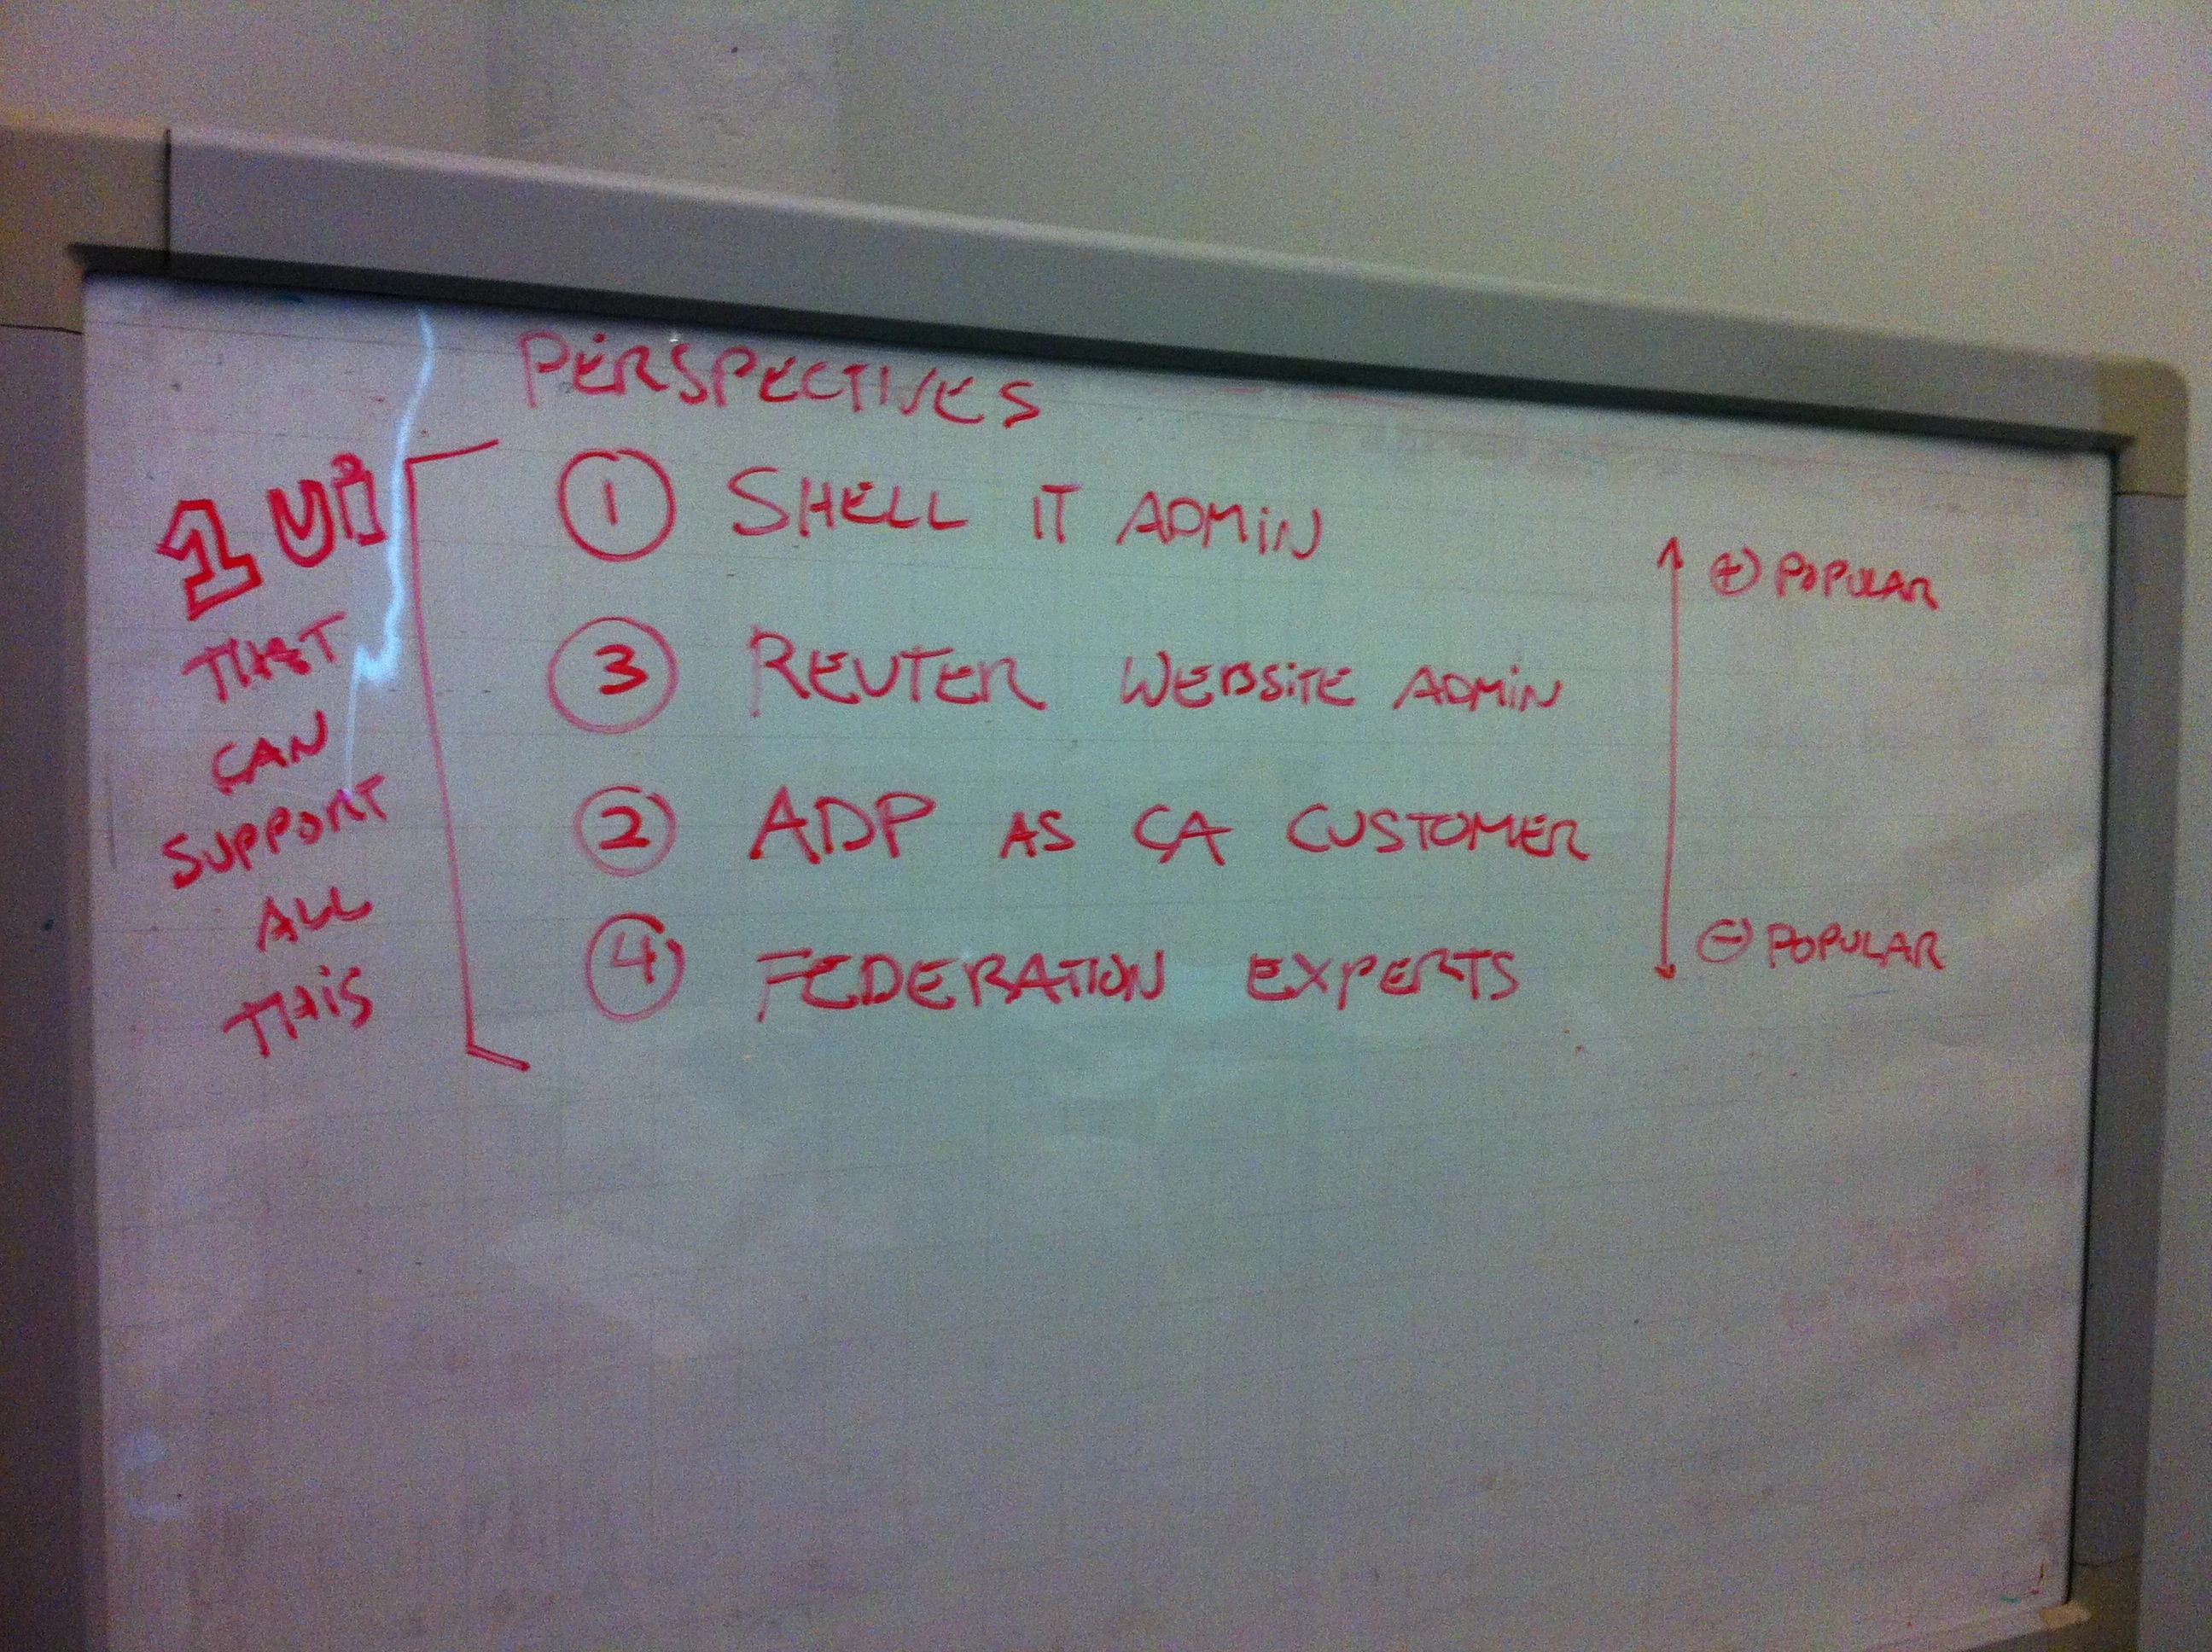 PERSPECTIVES
1 Ui
THAT
CAN
SUPPORT
ALL
THiS
1 SHELL IT ADMiN
3 REUTER WEBSiTE ADMiN
2 ADP AS CA CUSTOMER
4 FEDERATION EXPERTS
+ POPULAR
- POPULAR